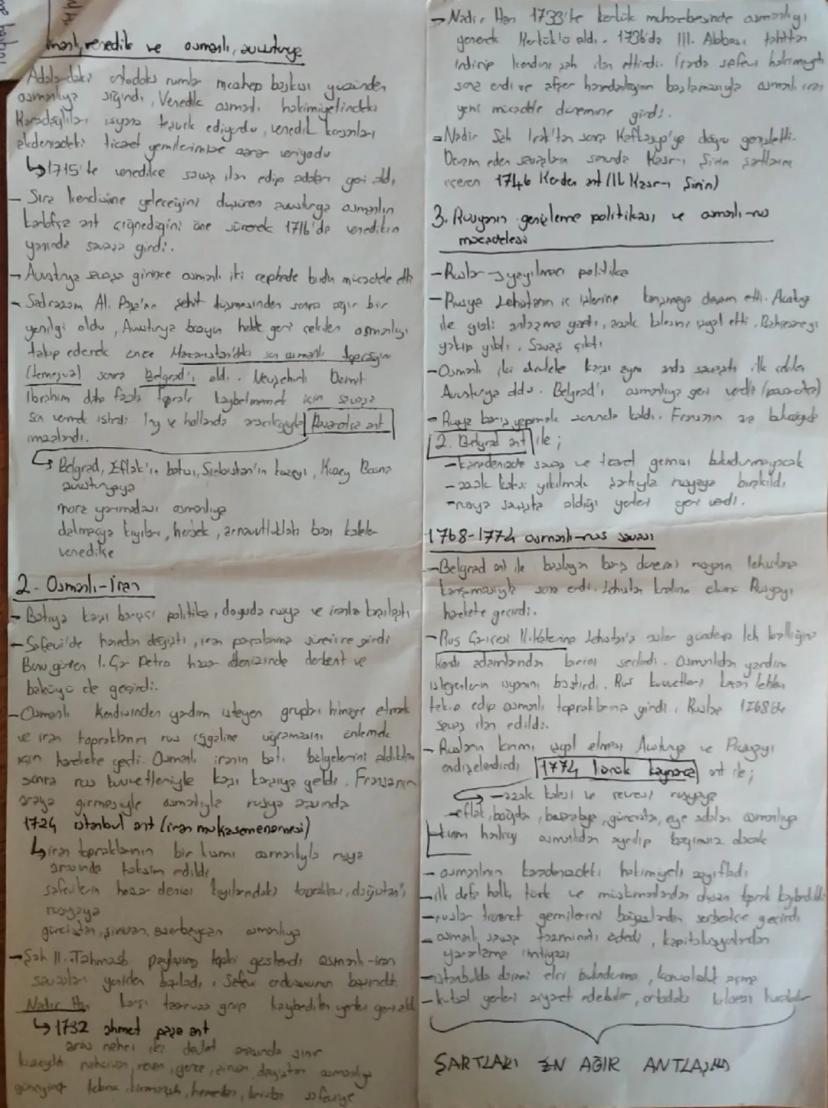 venedik ve osmanlı, avusturya
Adalardaki ortodoks rumlar mezhep baskısı yüzünden
osmanlıya sığındı, Venedik osmanlı hakimiyetindeki
Karadağlıları isyana teşvik ediyordu, venedik korsanları
akdenizdeki ticaret gemilerimize zarar veriyodu
↳ 1715'te venedike savaş ilan edip adaları geri aldı
- Sıra kendisine geleceğini düşünen avusturya osmanlın
karlofça ant çiğnediğini öne sürerek 1716'da venedikin
yanında savaşa girdi.
→ Avusturya savaşa girince osmanlı iki cephede birden mücadele etti
- Sadrazam Al. Paşa'nın şehit düşmesinden sonra ağır bir
yenilgi oldu, Avusturya boyun halde geri çekilen osmanlıyı
takip ederek önce Macaristan'daki son osmanlı toprağını
(temeşvar) sonra Belgrad'ı aldı. Nevşehirli Damat
İbrahim daha fazla toprak kaybetmemek için savaşa
son vermek istedi. İng ve hollanda aracılığıyla Pasarofça ant
imzalandı.
↳ Belgrad, Eflak'ın batısı, Sırbistan'ın kuzeyi, Kuzey Bosna
avusturyaya
mora yarımadası osmanlıya
dalmaçya kıyıları, hersek, arnavutluktaki bazı kaleler
venedike
2. Osmanlı-İran
- Batıya karşı barışçı politika, doğuda rusya ve iranla karşılaştı
- Safevi'de hanedan değişti, iran parçalanma sürecine girdi
Bunu gören I. Çar Petro hazar denizinde derbent ve
baküyü ele geçirdi.
- Osmanlı kendisinden yardım isteyen grupları himaye etmek
ve iran topraklarının rus işgaline uğramasını önlemek
için harekete geçti. Osmanlı iranın batı bölgelerini aldıktan
sonra rus kuvvetleriyle karşı karşıya geldi. Fransanın
araya girmesiyle osmanlıyla rusya arasında
1724 istanbul ant (iran mukasemenamesi)
↳ iran topraklarının bir kısmı osmanlıyla rusya
arasında taksim edildi
safevilerin hazar denizi kıyılarındaki toprakları, dağıstan'ı
rusyaya
gürcistan, şirvan, azerbeycan osmanlıya
- Şah II. Tahmasb paylaşıma tepki gösterdi osmanlı-iran
savaşları yeniden başladı, Safevi ordusunun başındaki
Nadir Han karşı taarruza geçip kaybedilen yerleri geri aldı
↳ 1732 ahmet paşa ant
aras nehri iki devlet arasında sınır
kuzeyde nahcivan, revan, gence, şirvan, dağıstan osmanlıya
güneyinde tebriz, kirmanşah, hemedan, loristan safeviye
→ Nadir Han 1733'te kerkük muharebesinde osmanlıyı
yenerek Kerkük'ü aldı. 1736'da III. Abbası tahttan
indirip kendini şah ilan ettirdi. İranda safevi hakimiyeti
sona erdi ve afşar hanedanlığının başlamasıyla osmanlı iran
yeni mücadele dönemine girdi.
- Nadir Şah Irak'tan sonra Kafkasya'ya doğru genişletti.
Devam eden savaşların sonunda Kasr-ı Şirin şartlarını
içeren 1746 Kerden ant (II. Kasr-ı Şirin)
3. Rusyanın genişleme politikası ve osmanlı-rus
mücadelesi
- Ruslar → yayılmacı politika
- Rusya Lehistanın iç işlerine karışmaya devam etti. Avusturya
ile gizli anlaşma yaptı, azak kalesini işgal etti. Bahçesarayı
yakıp yıktı. Savaş çıktı.
- Osmanlı iki devlete karşı aynı anda savaştı ilk çekilen
Avusturya oldu. Belgrad'ı osmanlıya geri verdi (pasarofça)
- Rusya barış yapmak zorunda kaldı. Fransanın ara buluculuğuyla
2. Belgrad ant ile;
- karadenizde savaş ve ticaret gemisi bulundurmayacak
- azak kalesi yıkılmak şartıyla rusyaya bırakıldı
- rusya savaşta aldığı yerleri geri verdi.
1768-1774 osmanlı-rus savaşı
- Belgrad ant ile başlayan barış dönemi rusyanın lehistana
karışmasıyla sona erdi. Lehistan kralının ölümü Rusyayı
harekete geçirdi.
- Rus Çariçesi II. Katerina Lehistan'a asker gönderip Leh krallığına
kendi adamlarından birini seçtirdi. Osmanlıdan yardım
isteyenlerin isyanını bastırdı. Rus kuvvetleri kaçan lehleri
takip edip osmanlı topraklarına girdi. Ruslara 1768'de
savaş ilan edildi.
- Rusların kırımı işgal etmesi Avusturya ve Prusyayı
endişelendirdi 1774 küçük kaynarca ant ile;
→ azak kalesi ve çevresi rusyaya
- eflak, boğdan, basarabya, gürcistan, ege adaları osmanlıya
kırım hanlığı osmanlıdan ayrılıp bağımsız olacak
- osmanlının karadenizdeki hakimiyeti zayıfladı
- ilk defa halkı türk ve müslümanlardan oluşan toprak kaybedildi
- ruslar ticaret gemilerini boğazlardan serbestçe geçirdi
- osmanlı savaş tazminatı ödedi, kapitülasyonlardan
yararlanma imtiyazı
- istanbulda daimi elçi bulundurma, konsolosluk açma
- kutsal yerleri ziyaret edebilir, ortodoks kilisesi kurabilir
ŞARTLARI EN AĞIR ANTLAŞMA